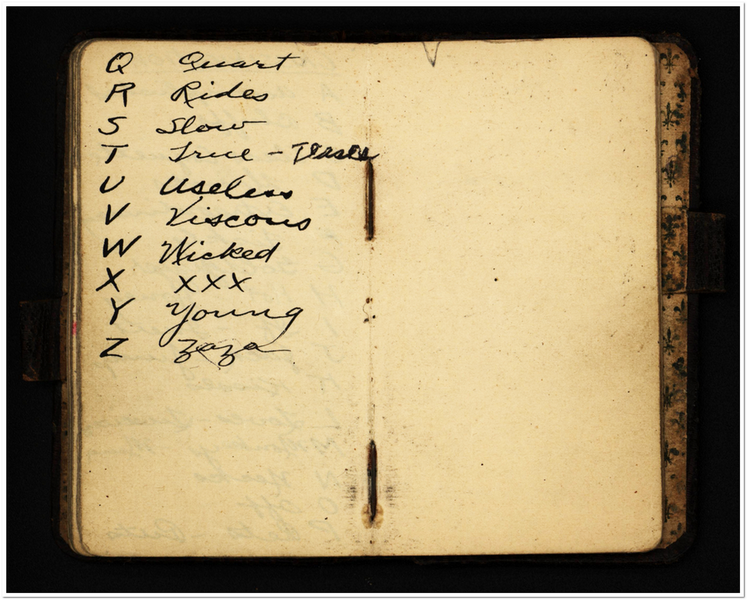 Q Quart
R Rides
S Slow
T True -
U Useless
V Viscous
W Wicked
X XXX
Y Young
Z Zaza